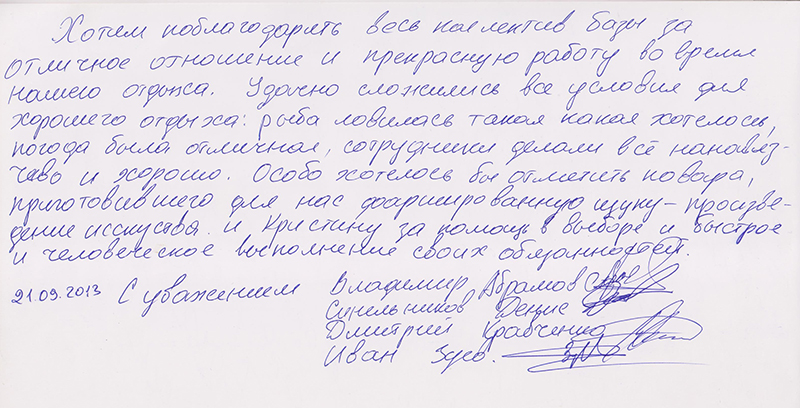 Хотем поблагодарить весь коллектив базы за
отличное отношение и прекрасную работу во время
нашего отдыха. Удачно сложились все условия для
хорошего отдыха: рыба ловилась такая какая хотелось,
погода была отличная, сотрудники делали всё ненавяз-
чево и хорошо. Особо хотелось бы отметить повара,
приготовившего для нас фаршированную щуку - произве-
дение исскуства. и Кристину за помощь в выборе и быстрое
и человеческое выполнение своих обязанностей.
21.09.2013 С уважением Владимир Абрамов
Синельников Денис
Дмитрий Кравченко
Иван